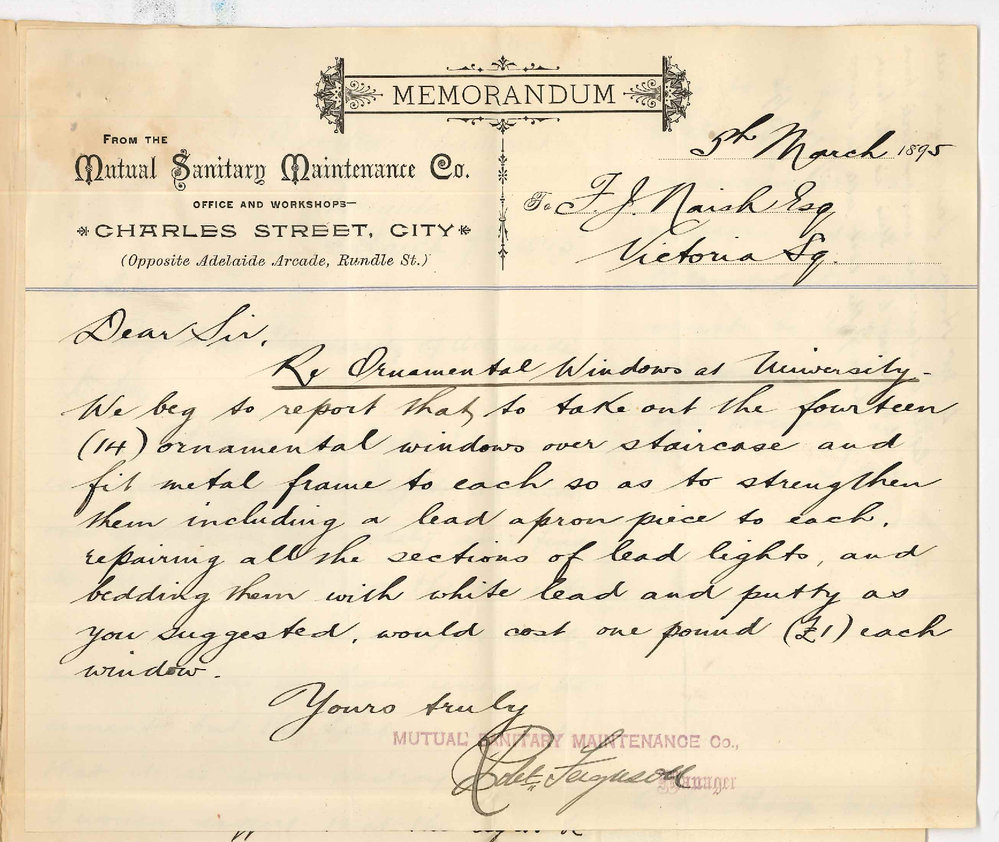 MEMORANDUM
FROM THE
Mutual Sanitary Maintenance Co.
OFFICE AND WORKSHOPS—
CHARLES STREET, CITY
(Opposite Adelaide Arcade, Rundle St.)
5th March 1895
To F. J. Naish Esq
Victoria Sq.
Dear Sir,
Re Ornamental Windows at University-
We beg to report that, to take out the fourteen
(14) ornamental windows over staircase and
fit metal frame to each so as to strengthen
them including a lead apron piece to each,
repairing all the sections of lead lights, and
bedding them with white lead and putty as
you suggested, would cost one pound (£1) each
window.
Yours truly
MUTUAL SANITARY MAINTENANCE Co.,
Robt. Ferguson
Manager